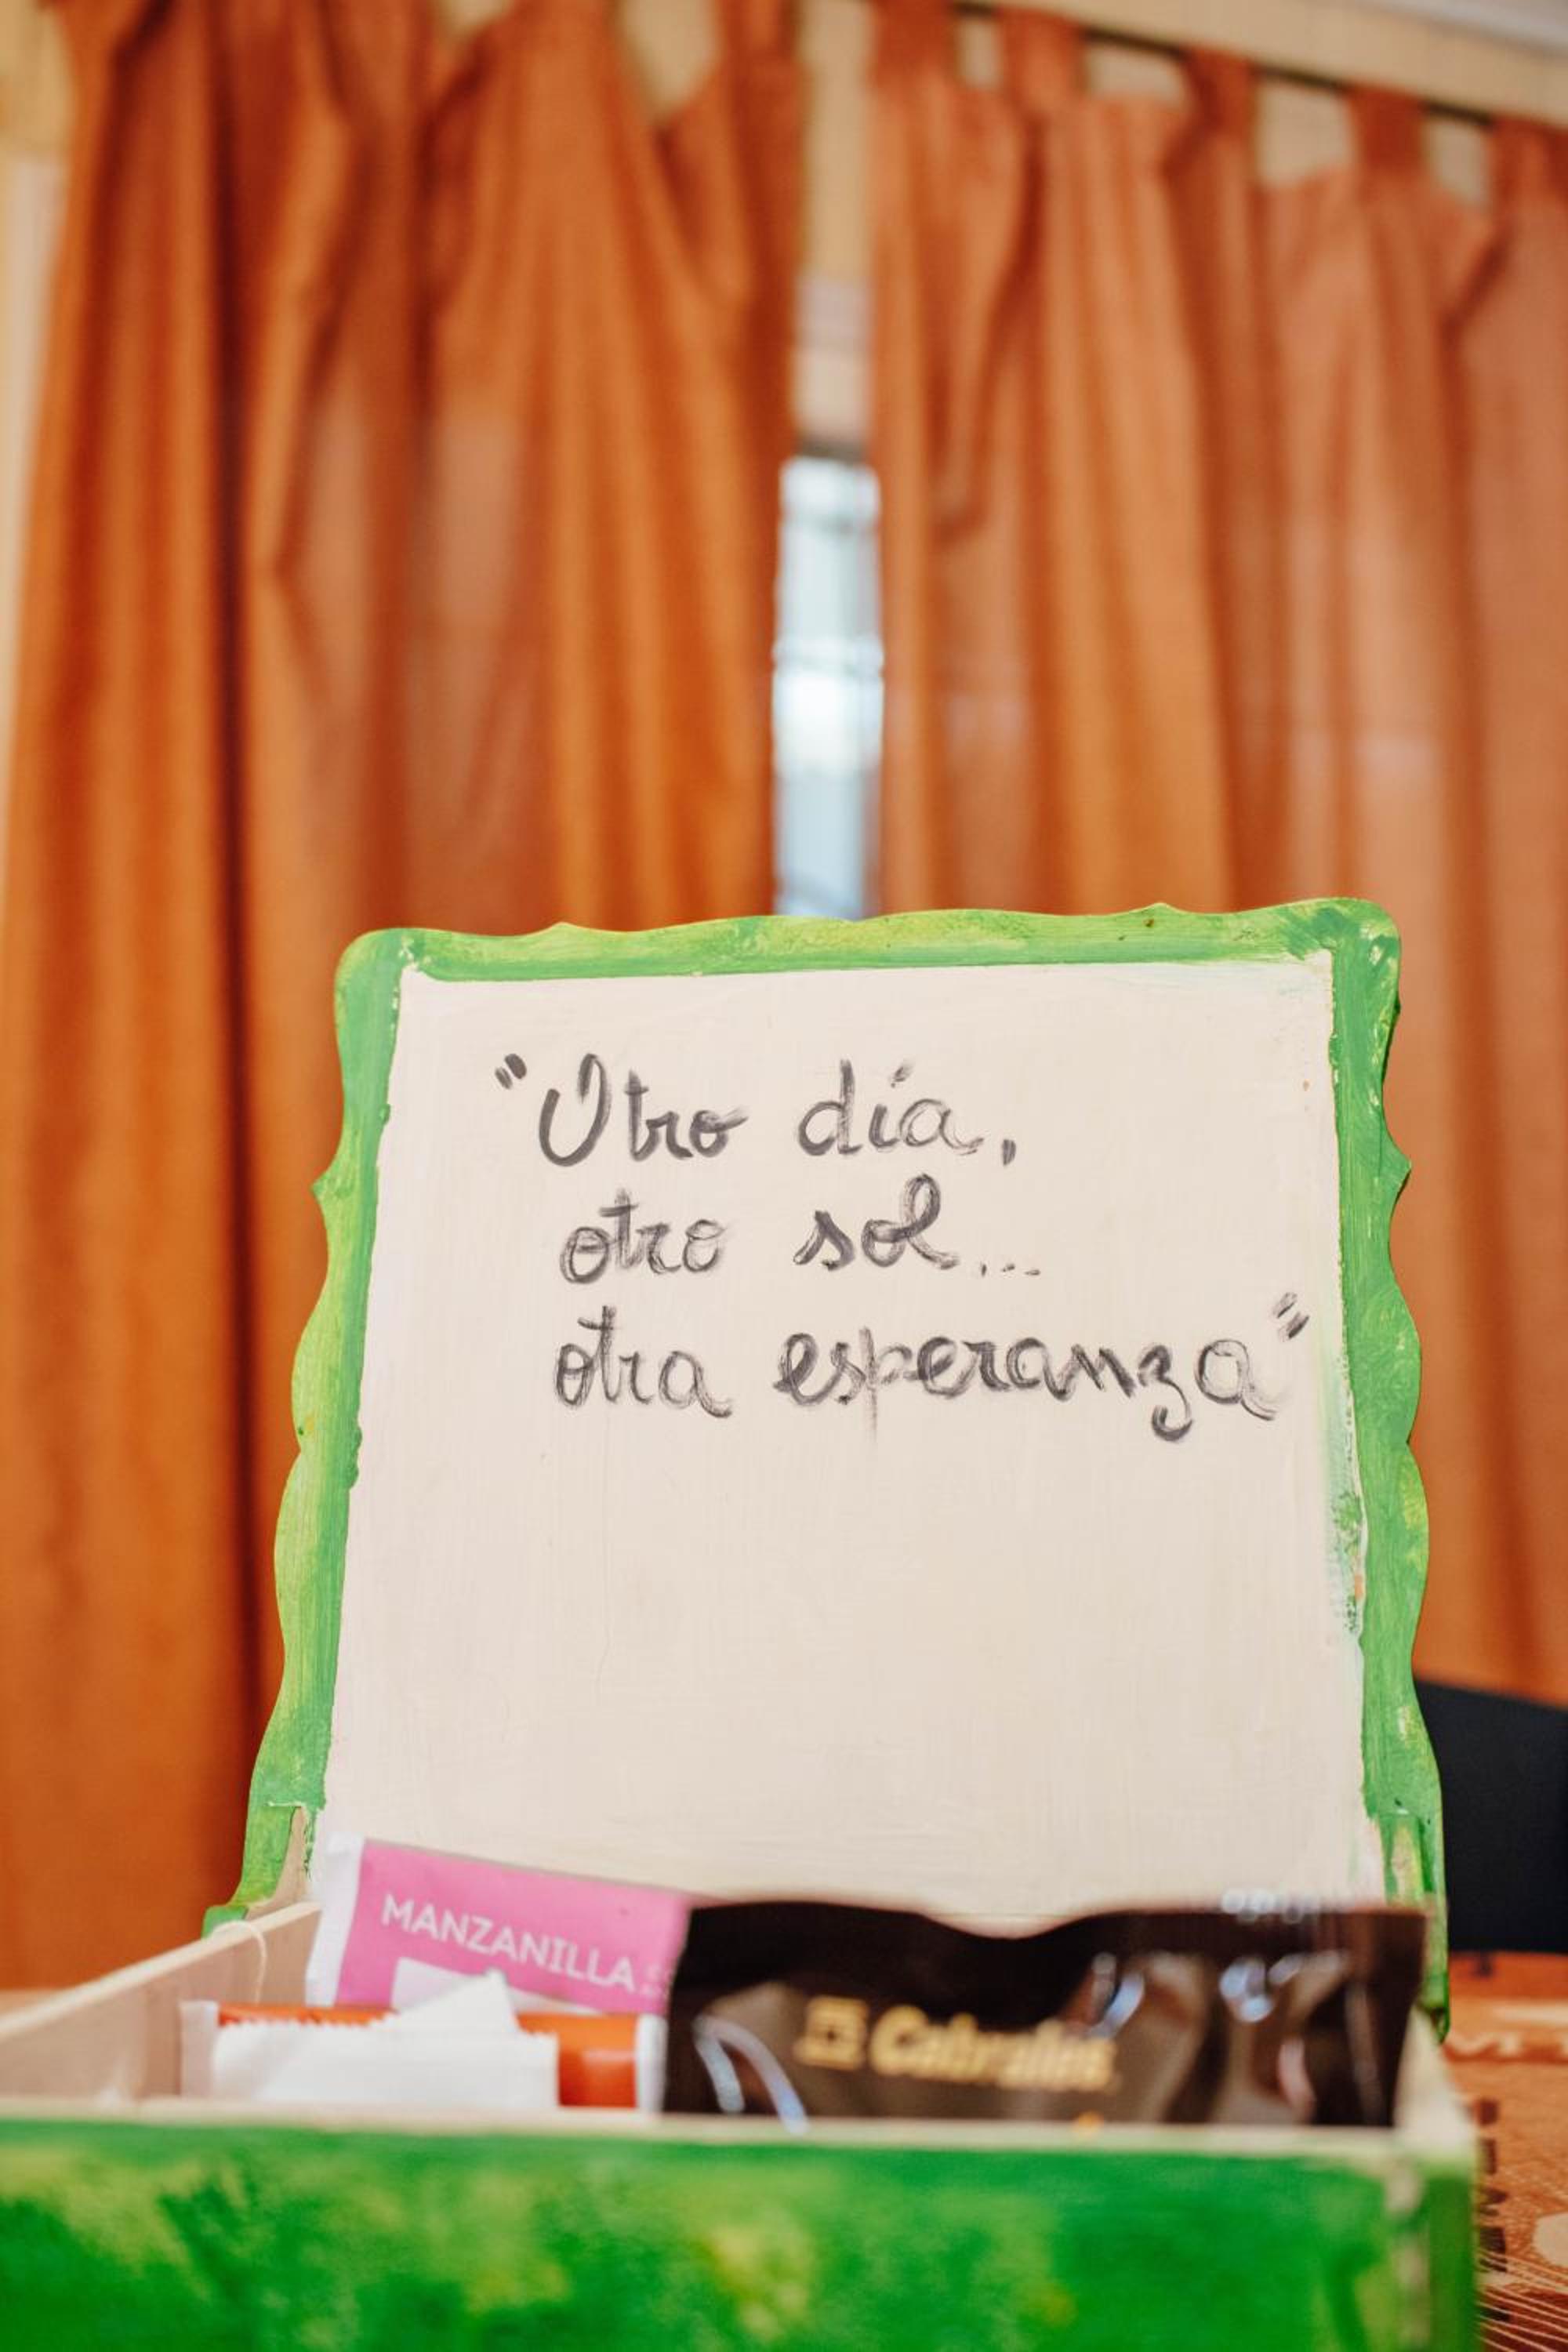 "Otro día,
otro sol...
otra esperanza"
MANZANILLA
Cabrales